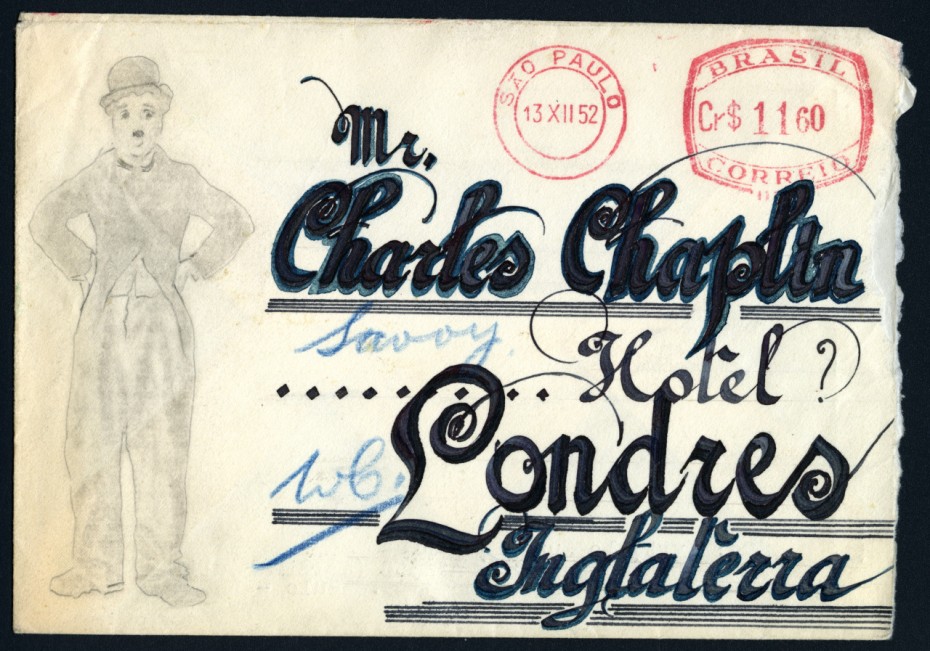 SÃO PAULO
13 XII 52
BRASIL
Cr$ 1160
CORREIO
Mr.
Charles Chaplin
Savoy.
.............. Hotel ?
WC. Londres
Inglatèrra